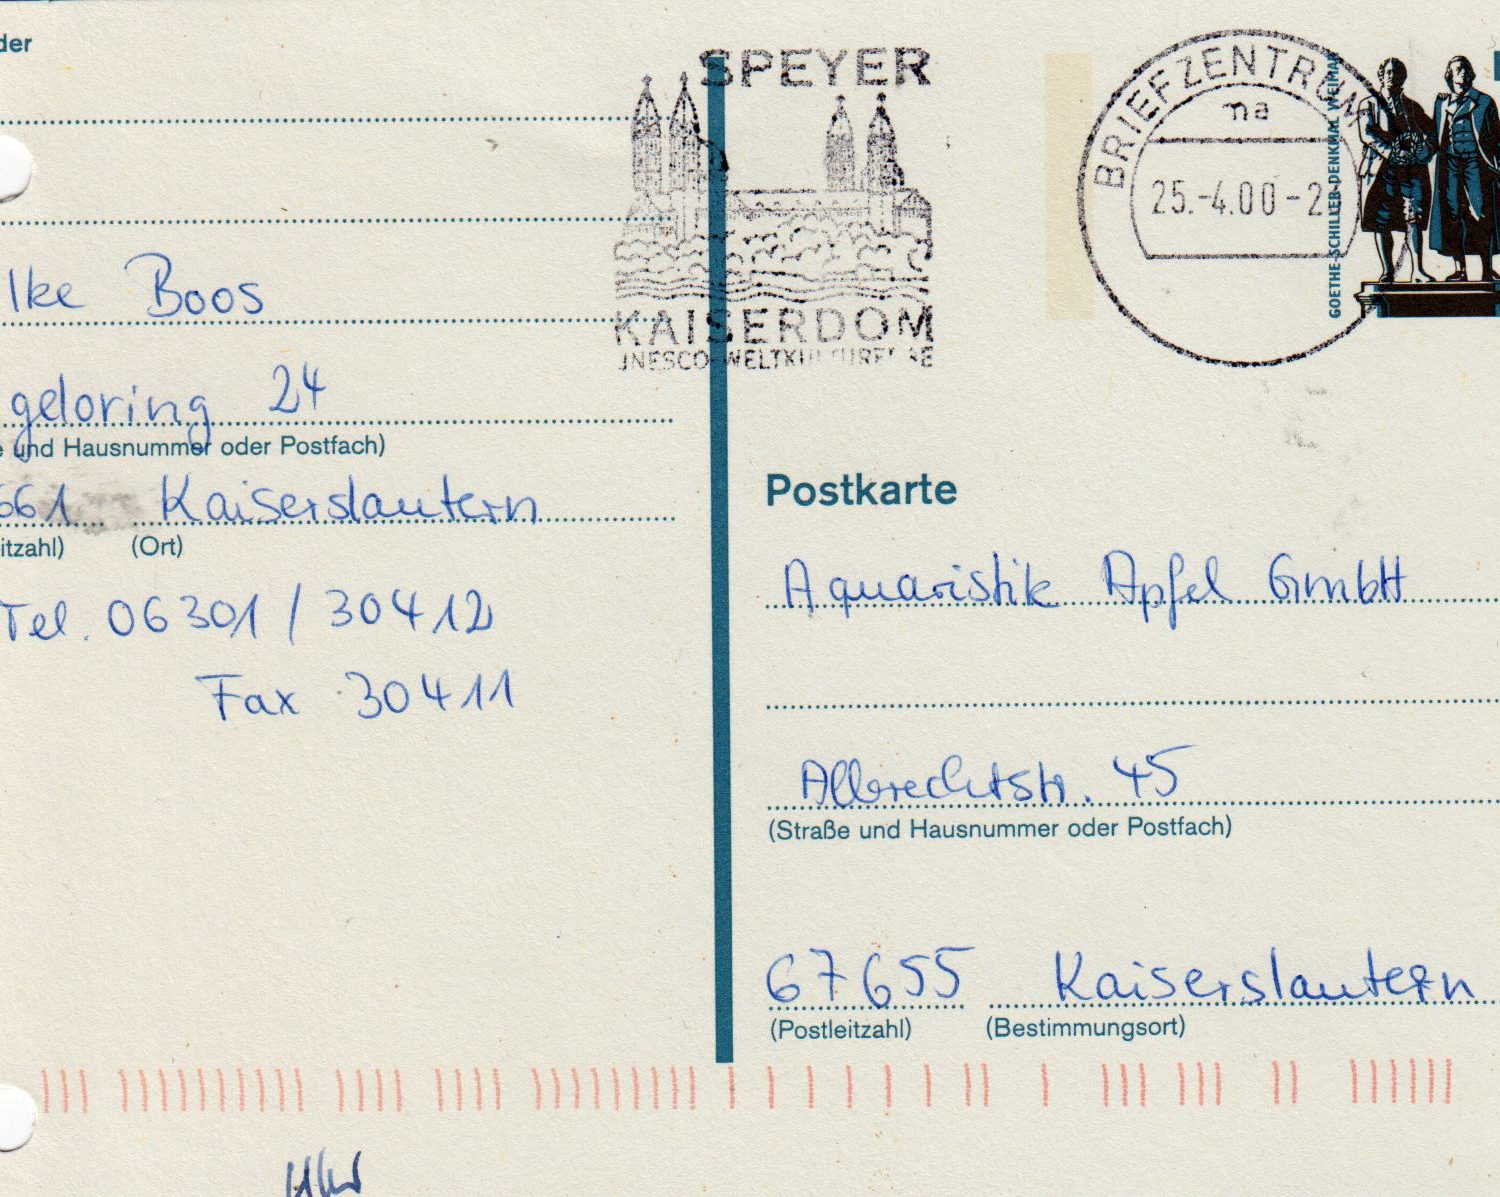 der
lke Boos
geloring 24
e und Hausnummer oder Postfach)
661 Kaiserslautern
itzahl) (Ort)
Tel. 06301 / 30412
Fax 30411
SPEYER
KAISERDOM
UNESCO-WELTKULTURERBE
BRIEFZENTRUM
na
25.-4.00-2
GOETHE-SCHILLER-DENKMAL WEIMAR
Postkarte
Aquaristik Apfel GmbH
Albrechtstr. 45
(Straße und Hausnummer oder Postfach)
67655 Kaiserslautern
(Postleitzahl) (Bestimmungsort)